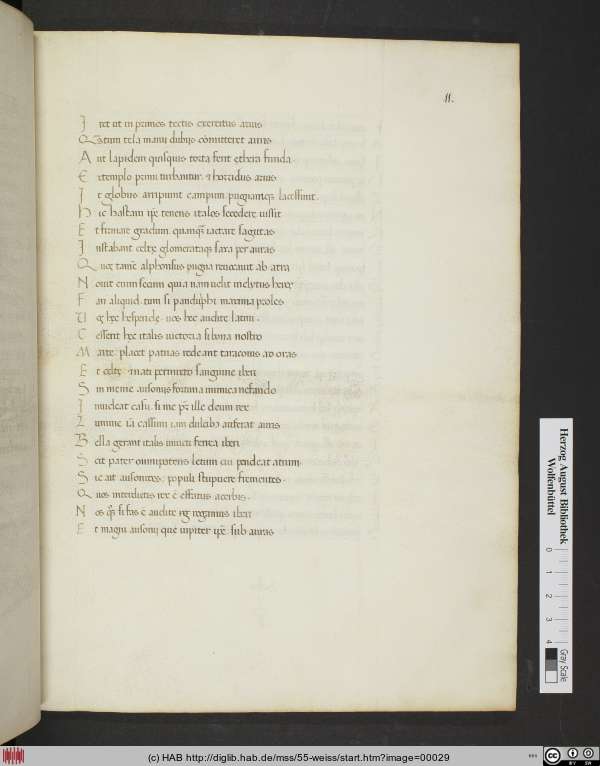 11.
I ret ut in primos tectis exercitus armis
Q uatum tela manu dubijs cōmitteret armis
A ut lapidem quisquis torta ferit etheris funda
E xtemplo primi turbantur & horridus armis
I t globus arripiunt campum pugnamq; lacessunt.
H ic hastam ipse tenens italos secedere iussit
E t firmare gradum quamq̄ iactare sagittas
I nstabant celtę glomerataq; saxa per auras
Q uos tamē alphonsus pugna reuocauit ab atra
N ouit enim secum qua nam uelit inclytus heros
F an aliquid. tum si pandulphi maxima proles
V os hęc hesperidę. uos hęc audite latini.
C essent hęc italis uictoria si bona nostro
M arte placet patrias redeant taraconis ad oras
E t celtę mati permixto sanguine iberi
S in meme ausonijs fortuna inimica nefando
I nuideat casu. si me pr̄ ille deum rex
L umine iā cassum iam dulcibꝰ auferat auris
B ella gerant italis inuicti fenica iberi
S cit pater omnipotens letum cui pendeat atrum.
S ic ait ausonios: populi stupuere frementes.
Q uos interdictis rex ē effatus acerbis.
N os q̄s si fas ē audite ng regamus iberi
E t magni ausonij que iupiter ipse sub auras
Herzog August Bibliothek
Wolfenbüttel
0 1 2 3 4
Gray Scale
(c) HAB http://diglib.hab.de/mss/55-weiss/start.htm?image=00029